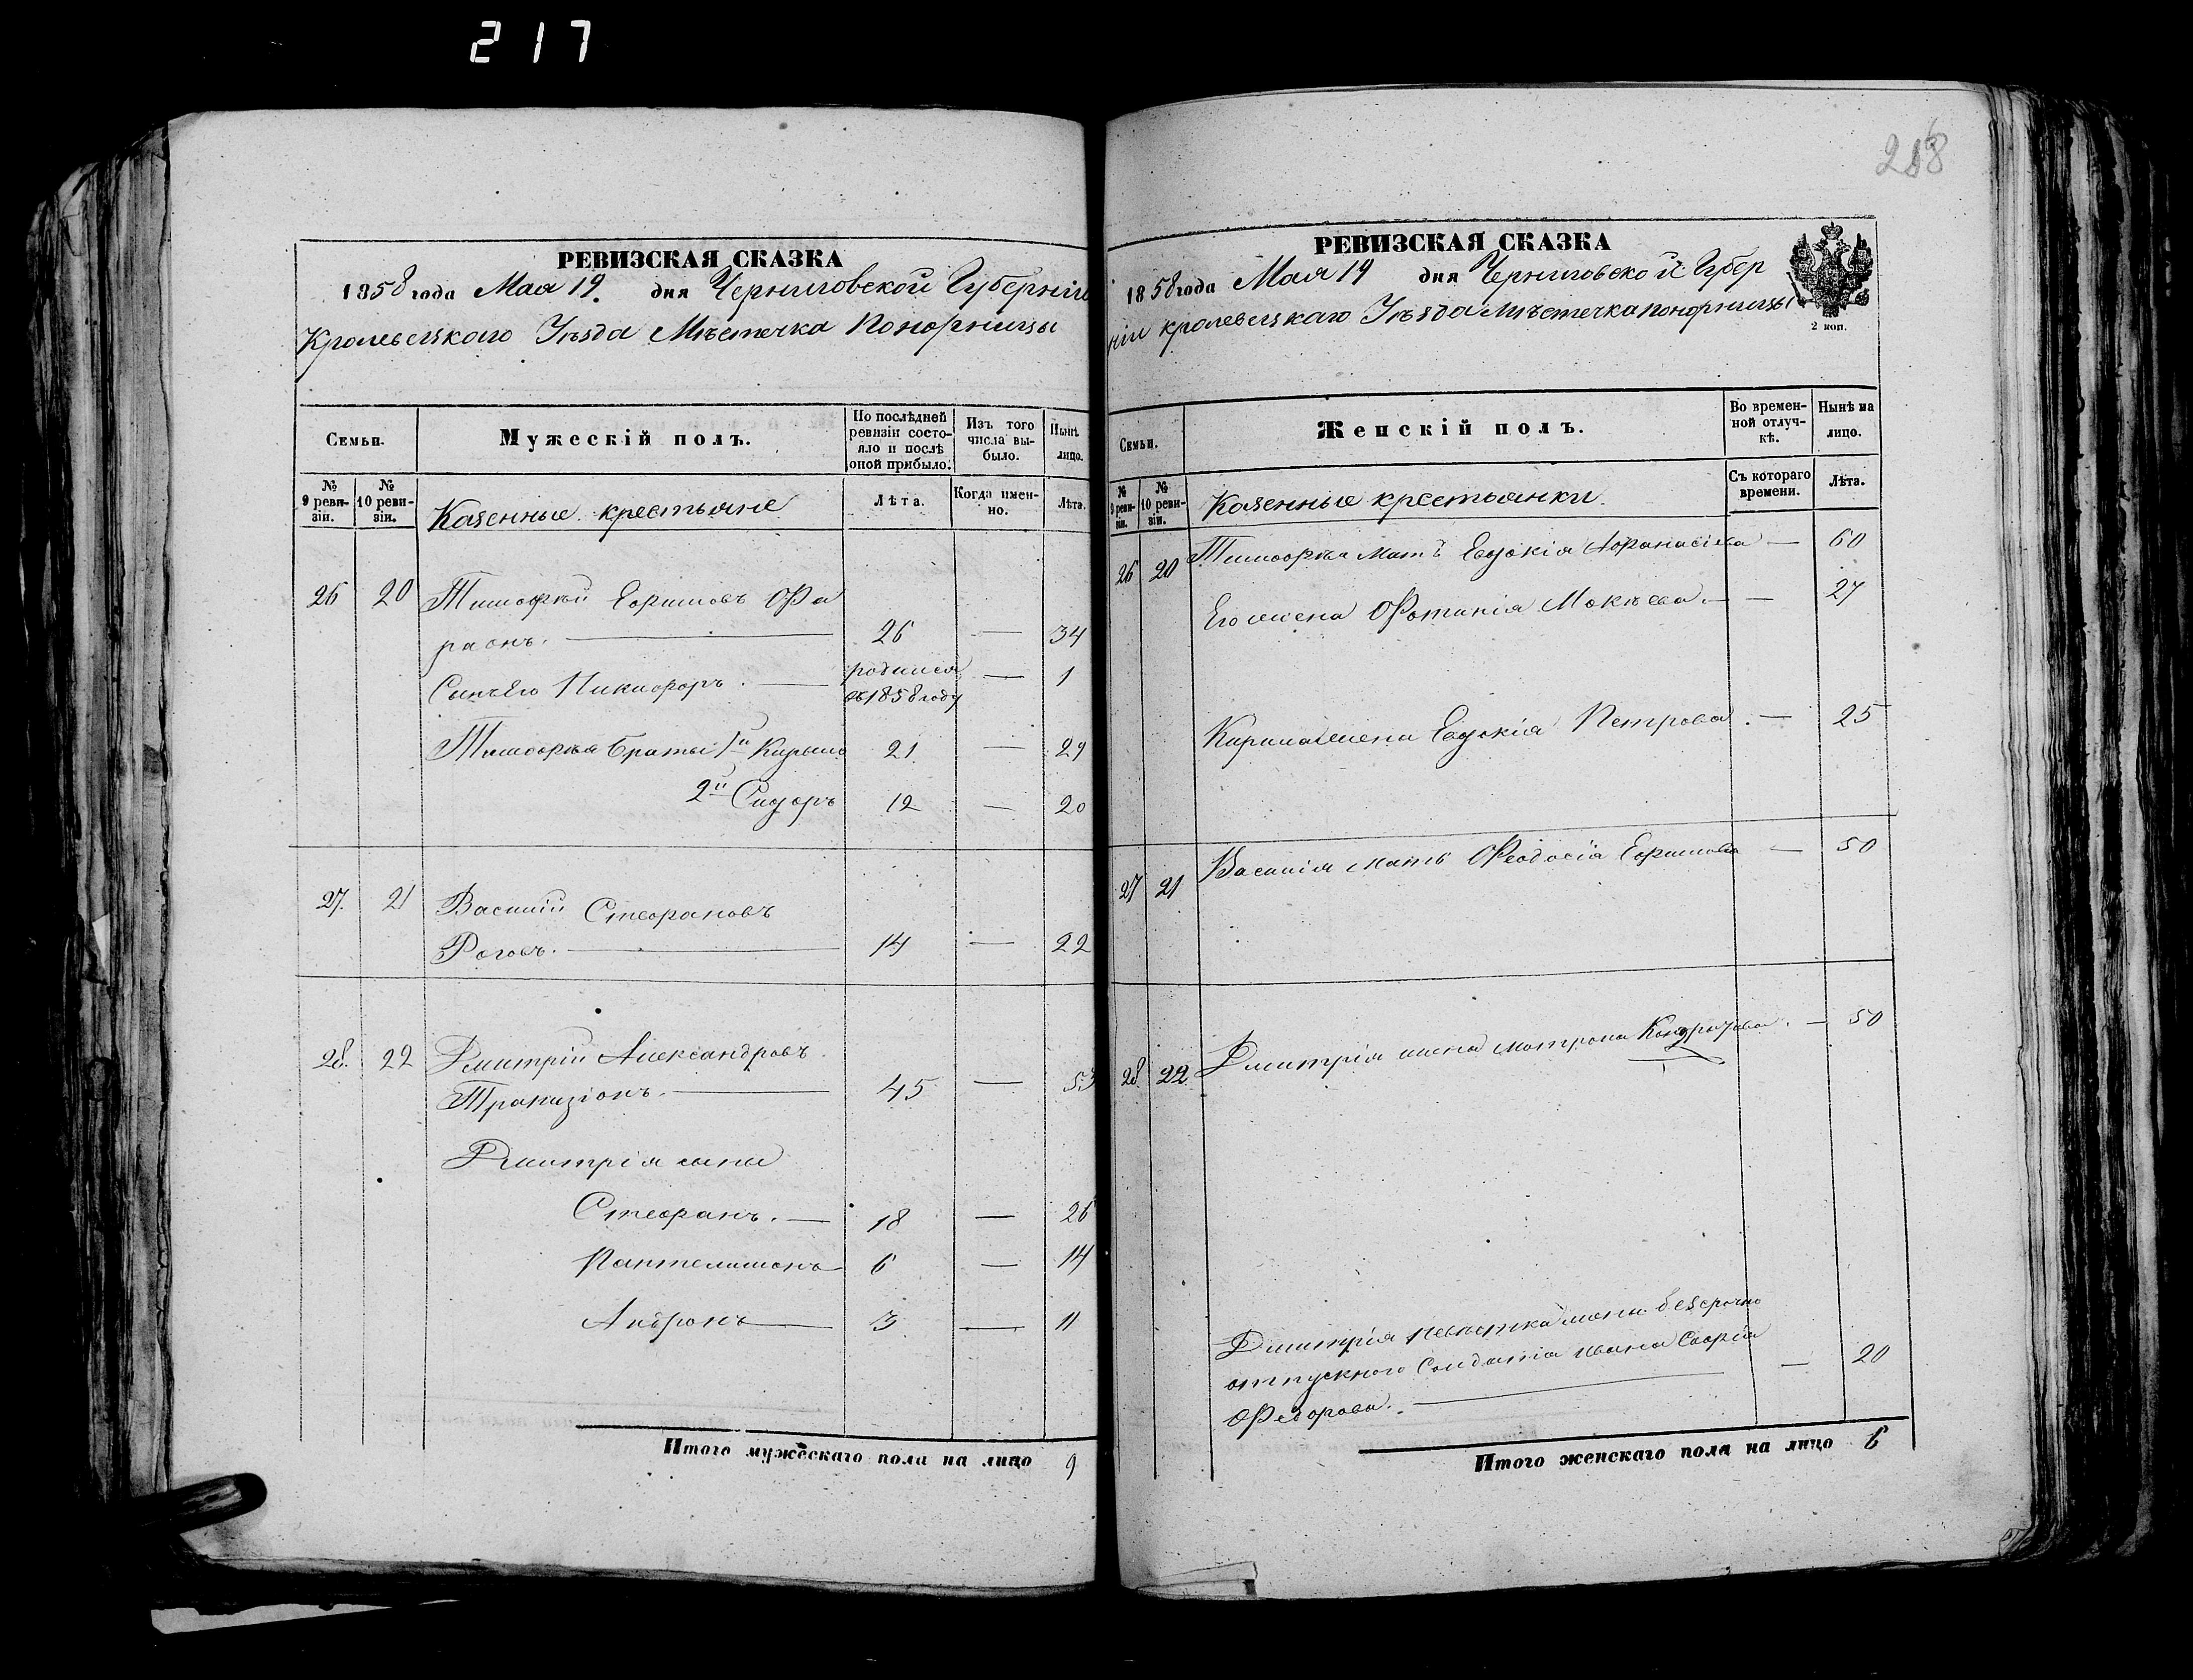 217
РЕВИЗСКАЯ СКАЗКА
1858 года Мая 19. дня Черниговской Губерніи
Кролевецкаго Уѣзда Мѣстечка Понорницы
Семьи.
Мужескій полъ.
По послѣдней ревизіи состояло и послѣ оной прибыло.
Изъ того числа выбыло.
Нынѣ лицо.
№ 9 ревизіи.
№ 10 ревизіи.
Казенные крестьяне
Лѣта.
Когда именно.
Лѣта.
26 20 Тимофѣй Ефимовъ Фа
раонъ. — 26 — 34
Сынъ Его Никифоръ. — родился въ 1858 году — 1
Тимофѣя братья 1й Кирило 21 — 29
2й Сидоръ 12 — 20
27. 21 Василій Стефановъ
Роговъ. — 14 — 22
28. 22 Дмитрій Александровъ
45 — 53
Дмитрія сыны
Стефанъ. — 18 — 26
Пантелимонъ 6 — 14
Андронъ — 3 — 11
Итого мужескаго пола на лицо 9
218
РЕВИЗСКАЯ СКАЗКА
1858 года Мая 19 дня Черниговской Губер
ніи Кролевецкаго Уѣзда Мѣстечка Понорницы
2 коп.
Семьи.
Женскій полъ.
Во временной отлучкѣ.
Нынѣ на лицо.
№ 9 ревизіи.
№ 10 ревизіи.
Казенные крестьянки
Съ котораго времени.
Лѣта.
26 20 Тимофѣя мать Евдокія Афанасіева — 60
Его жена Фотинія Мокѣева. — — 27
Кирила жена Евдокія Петрова. — 25
27 21 Василія мать Феодосія Ефимова — 50
28 22 Дмитрія жена Матрона Кондратова. — 50
Дмитрія невѣстка жена безсрочно
отпускного Солдата Ивана Софія
Федорова. — — 20
Итого женскаго пола на лицо 6